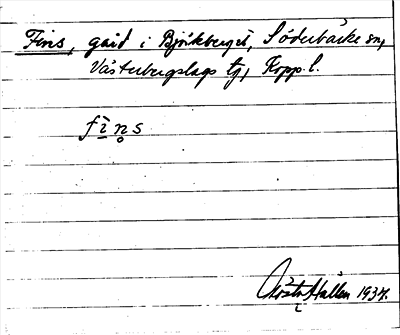 Fins, gård i Björkberget, Söderbärke sn,
Västerbergslags tg, Kopp. l.
fìn̥s
Hallén 1937.